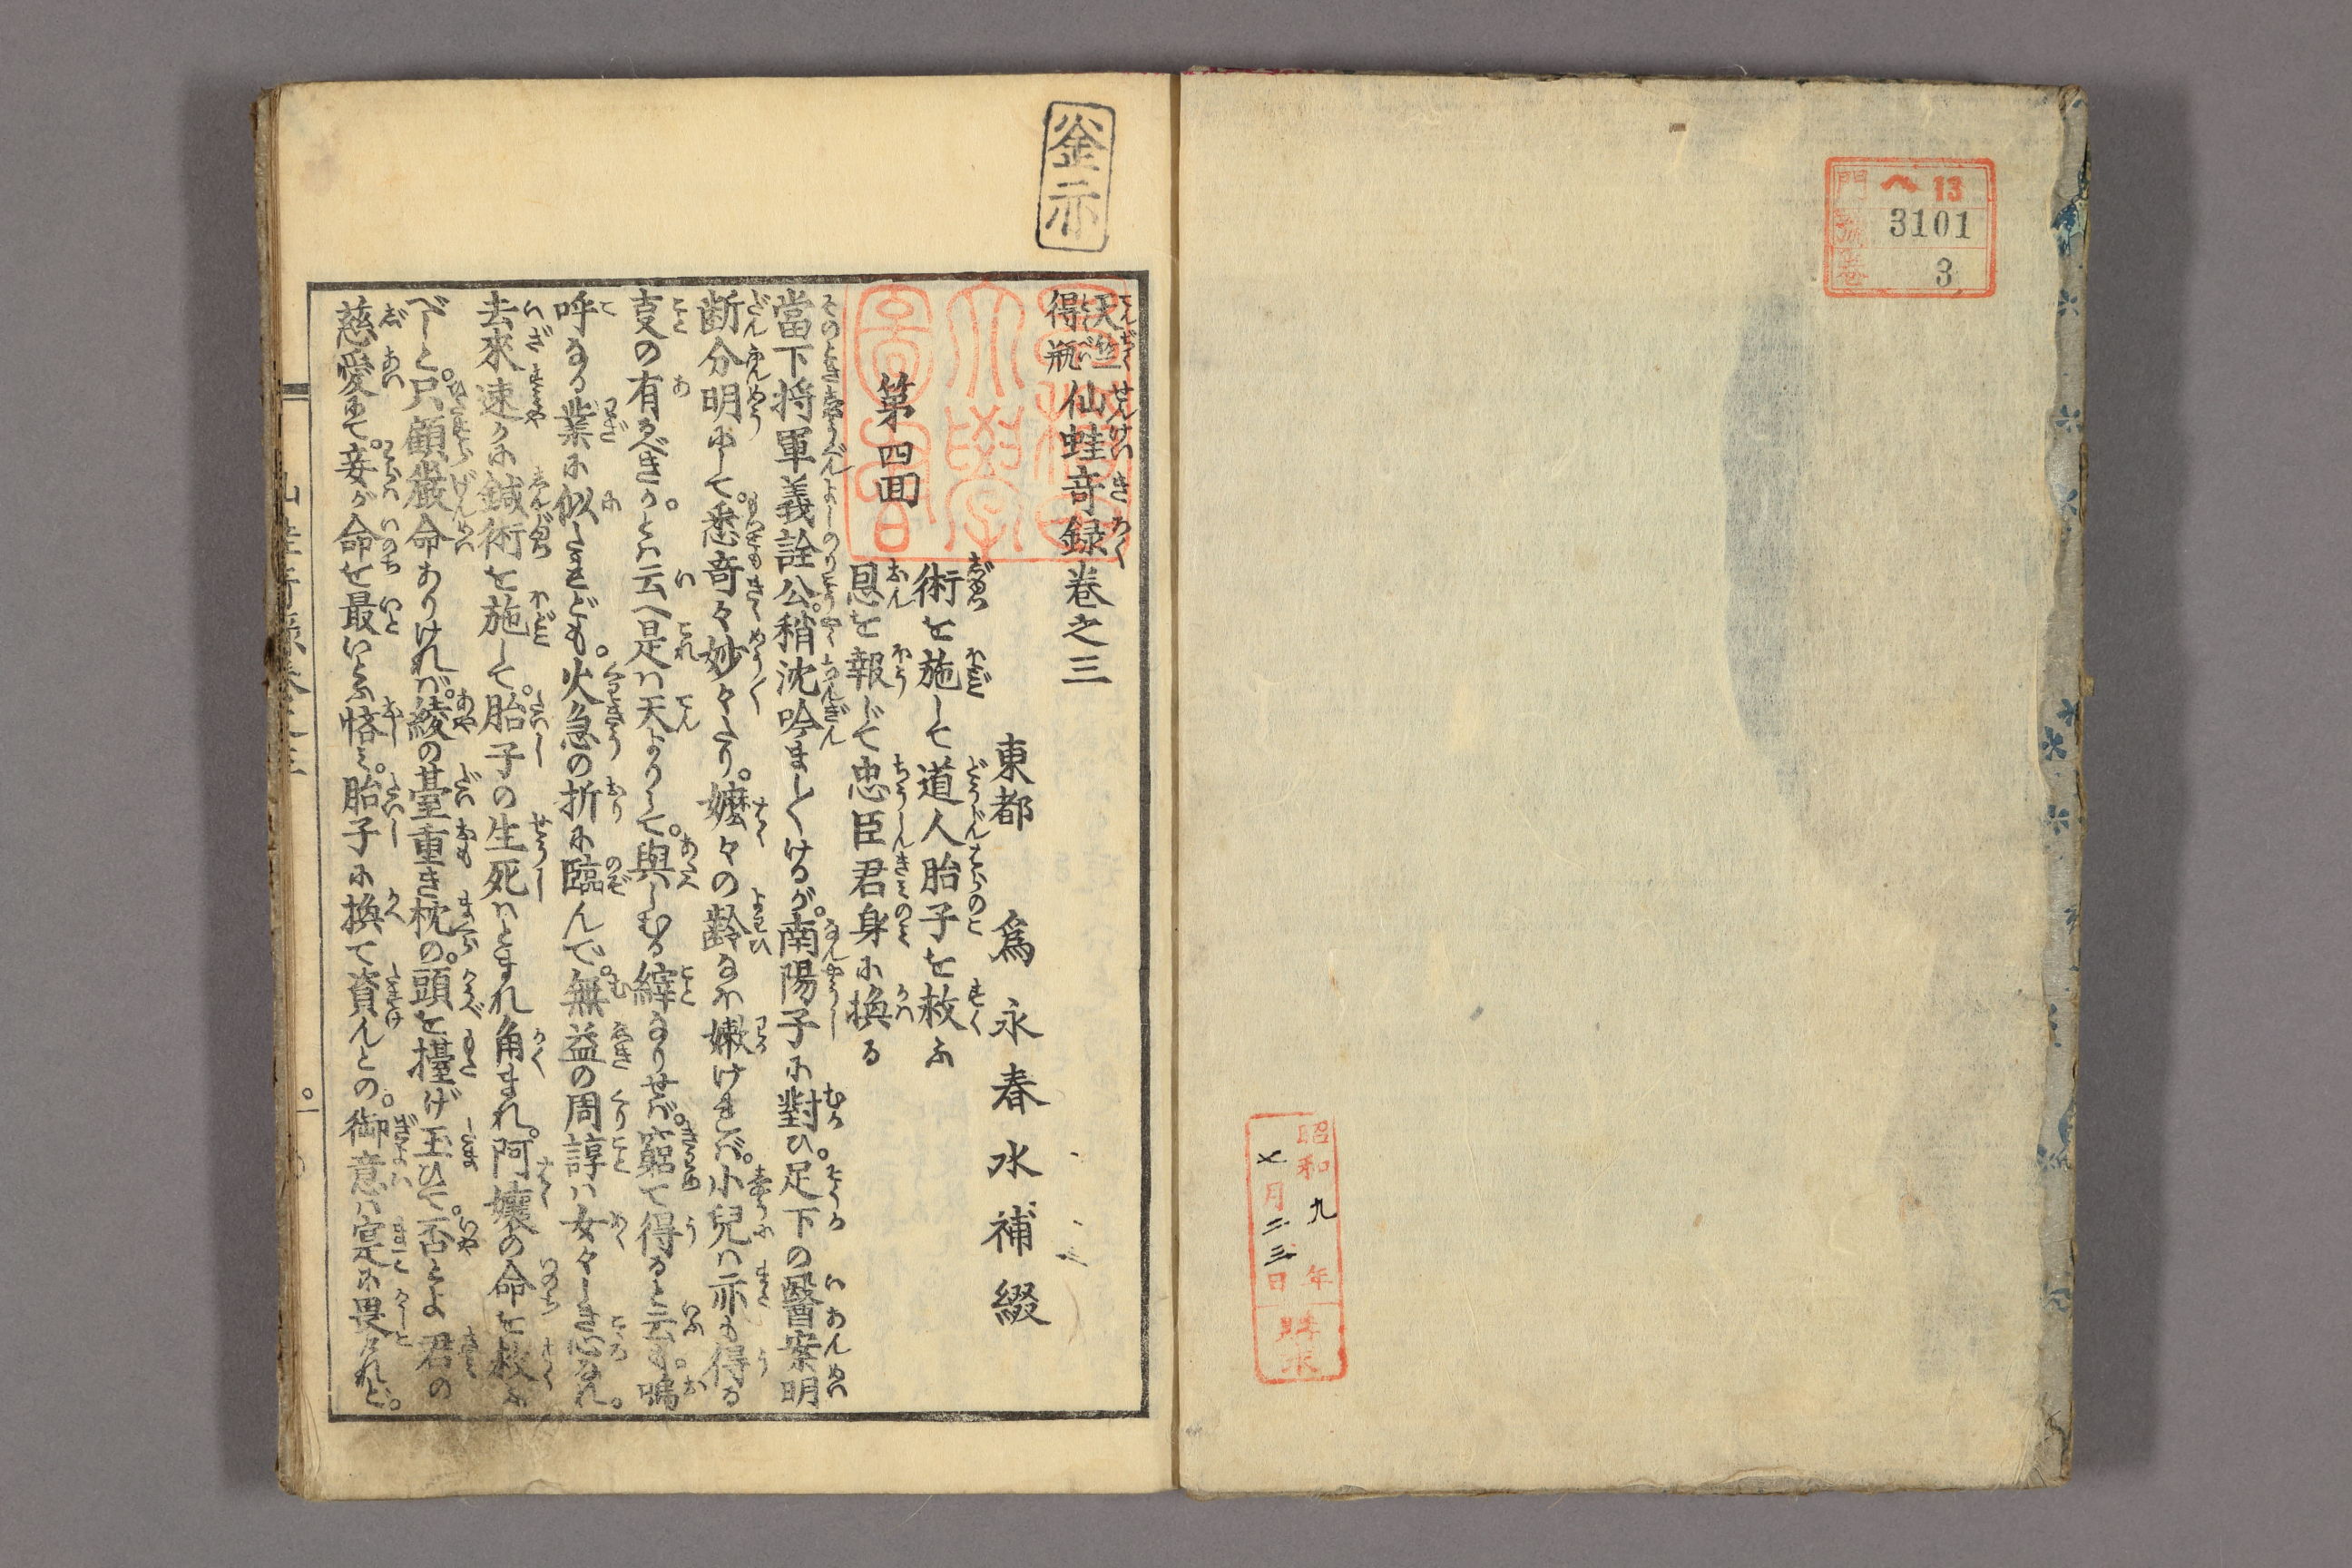 門 ヘ 13
號 3101
卷 3
昭和 九 年
七月二三日
購求
釜亦
天竺
得瓶
仙蛙奇録巻之三
東都 為永春水補綴
第四回
術を施して道人胎子を救ふ
恩を報じて忠臣君身に換る
當下将軍義詮公稍沈吟ましましけるが。南陽子に對ひ。足下の醫案明
断分明にして。悉奇々妙々たり。嬤々の齢なほ嫩ければ。小兒は亦も得る
支の有べきか。とは云へ是は天よりして。與しむる縡なりせば。窮て得ると云も。嗚
呼なる業に似たれども。火急の折に臨んで。無益の周諄は女々しき
去來速かに鍼術を施して。胎子の生死はともれ角まれ。阿孃の命を救ふ
べしと。只顧嚴命ありければ。綾の臺重き枕の。頭を擡げ玉ひて。否とよ君の
慈愛にて。妾が命を最いとふ悋み。胎子に換て資んとの。御意は寔に畏けれど。